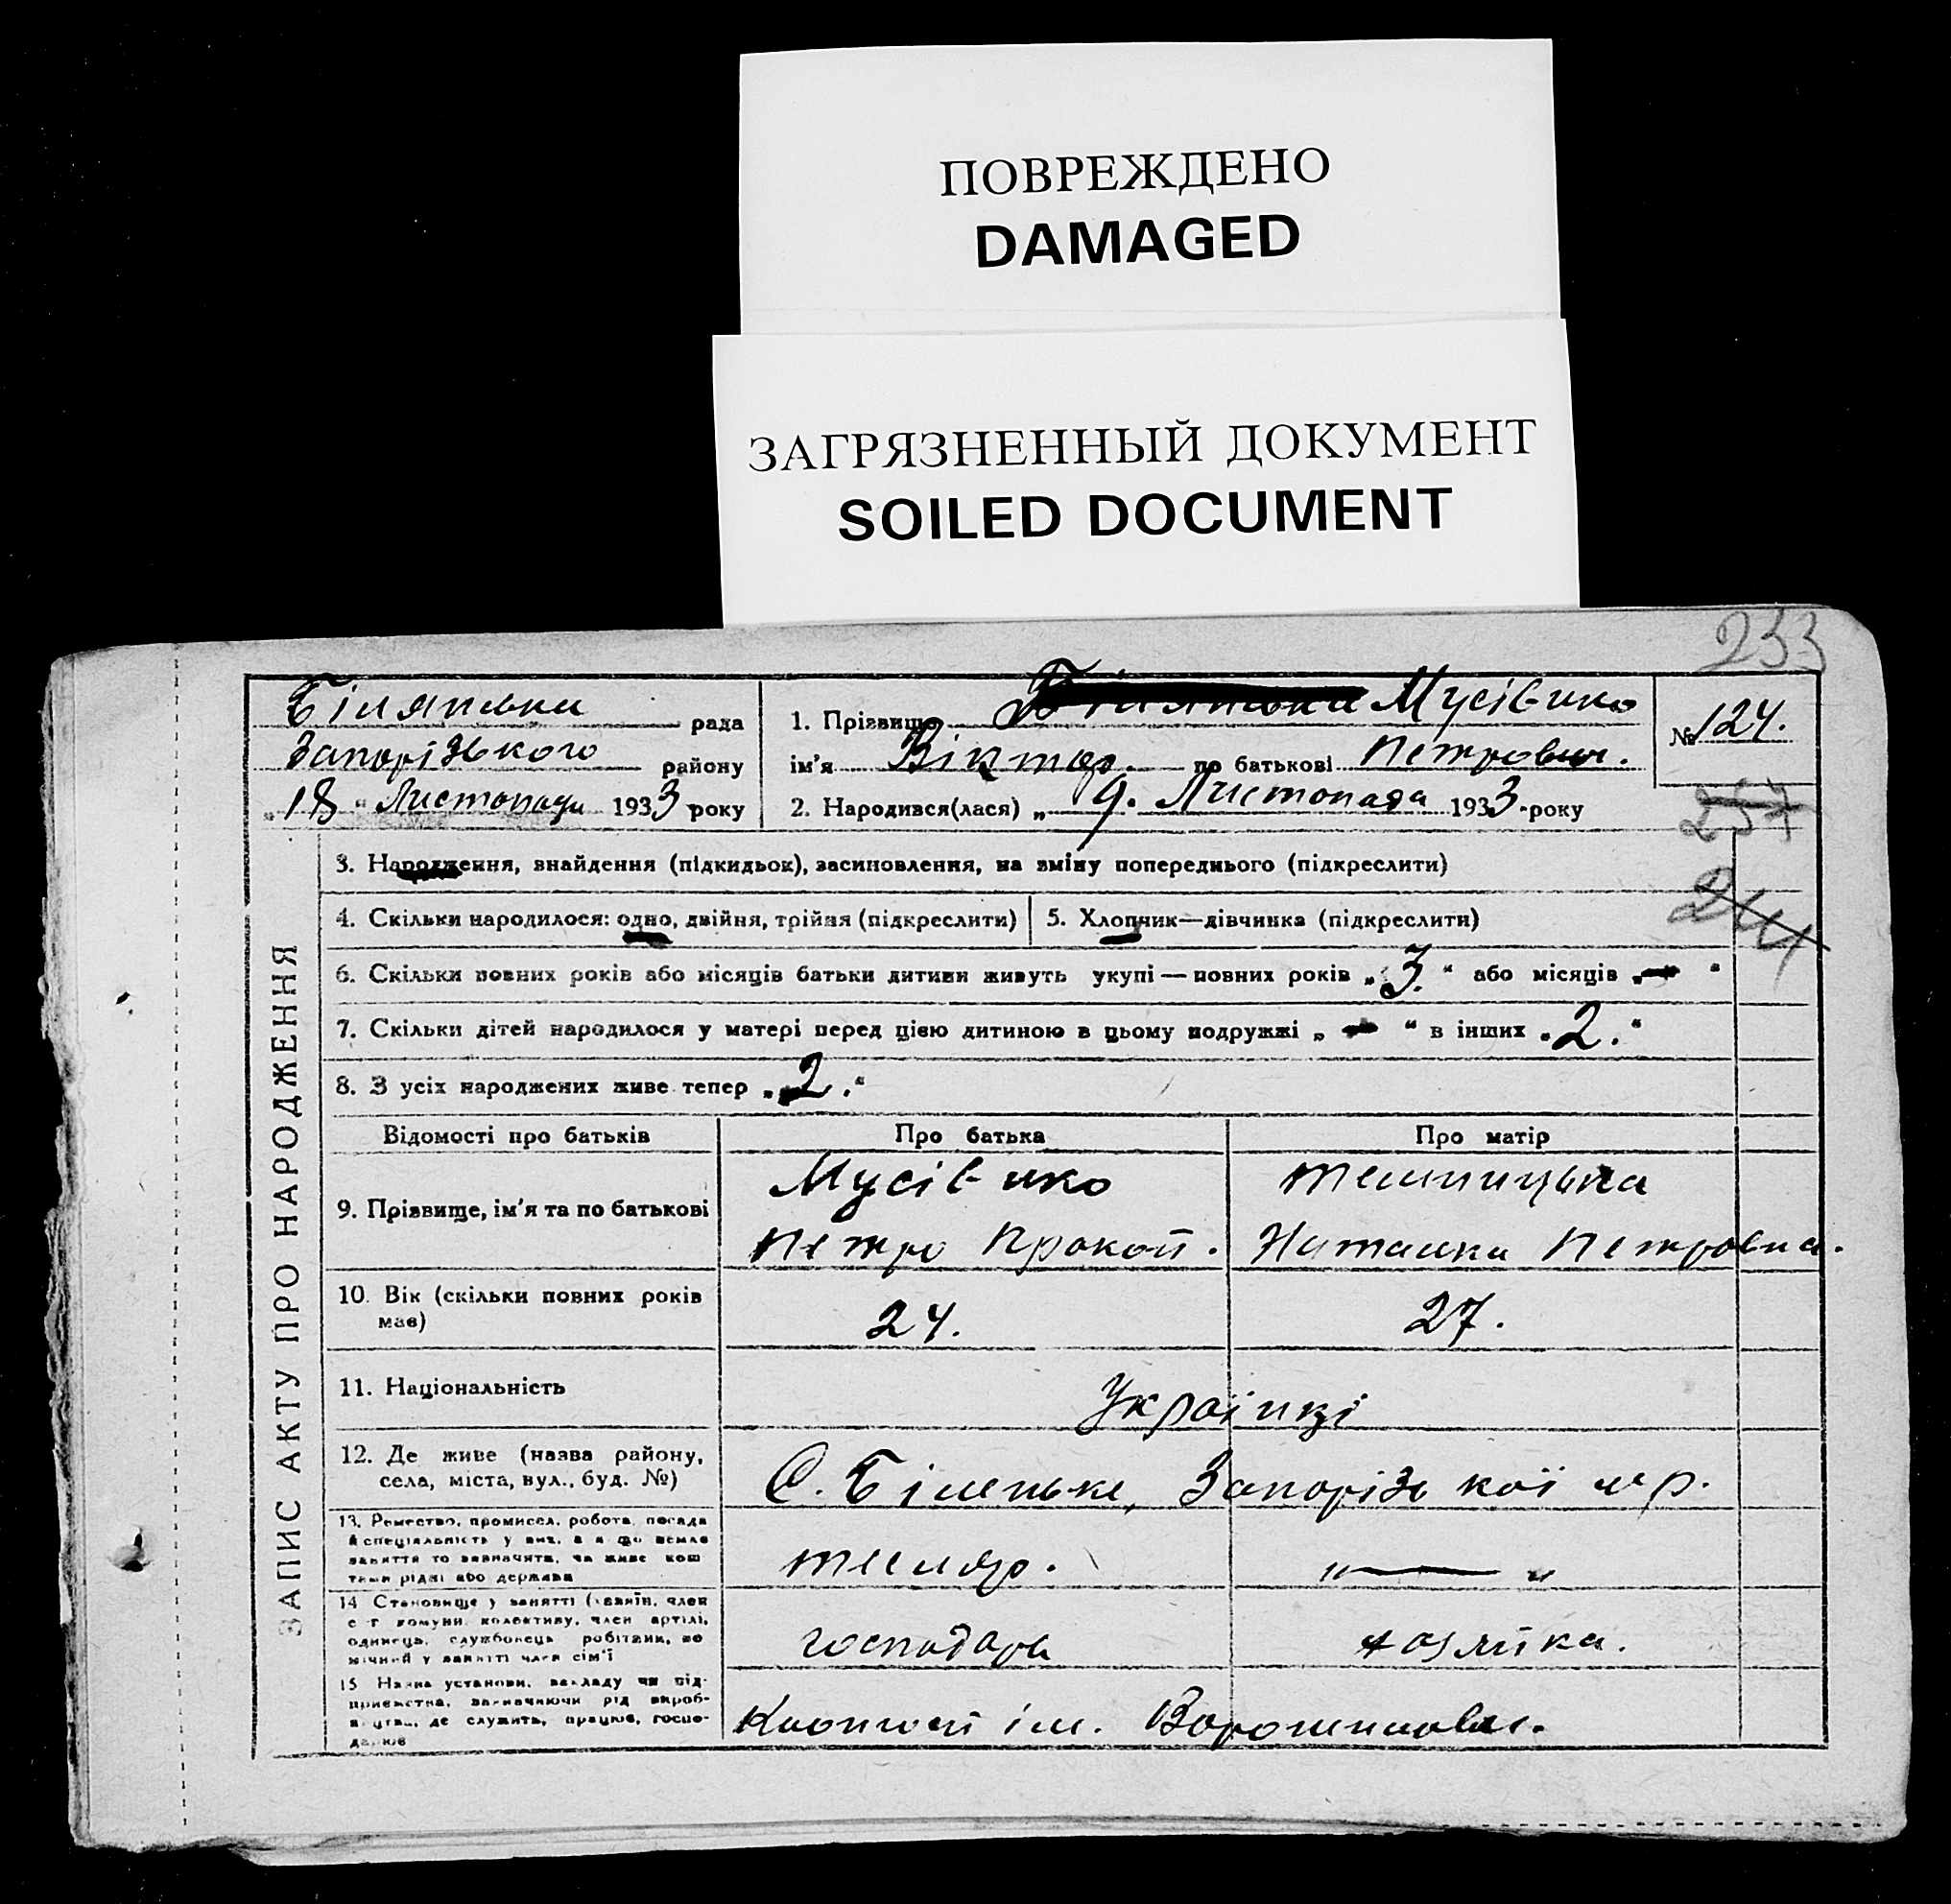 ПОВРЕЖДЕНО
DAMAGED
ЗАГРЯЗНЕННЫЙ ДОКУМЕНТ
SOILED DOCUMENT
233
ЗАПИС АКТУ ПРО НАРОДЖЕННЯ
рада
Запорізького району
"18" Листопада 1933 року
1. Прізвище Мусієнко
ім'я Віктор. по батькові Петрович.
2. Народився(лася) „9. Листопада 1933-року
№ 124.
257
244
3. Народження, знайдення (підкидьок), засиновлення, на зміну попереднього (підкреслити)
4. Скільки народилося: одно, двійня, трійня (підкреслити)
5. Хлопчик—дівчинка (підкреслити)
6. Скільки повних років або місяців батьки дитини живуть укупі — повних років „3." або місяців „—"
7. Скільки дітей народилося у матері перед цією дитиною в цьому подружжі „—" в інших „2."
8. З усіх народжених живе тепер „2."
Відомості про батьків
Про батька
Про матір
9. Прізвище, ім'я та по батькові
Мусієнко
Петро Прокоп.
Наталка Петровна.
10. Вік (скільки повних років має)
24.
27.
11. Національність
Українці
12. Де живе (назва району, села, міста, вул., буд. №)
С. Біленьке, Запорізької м р.
13. Ремество, промисел, робота, посада
й спеціяльність у них, а я що немає
заняття то зазначити, чи живе кош
тами рідні або держави
тесляр.
" — "
14 Становище у занятті (хазяїн, член
с-г комуни, колективу, член артілі,
одинець, службовець робітник, по
мічний у занятті член сім'ї
господарь
хазяйка.
15 Назва установи, закладу чи під-
приємства, зазначаючи рід вироб-
ництва, де служить, працює, госпо-
дарює
Колгосп ім. Ворошилова.